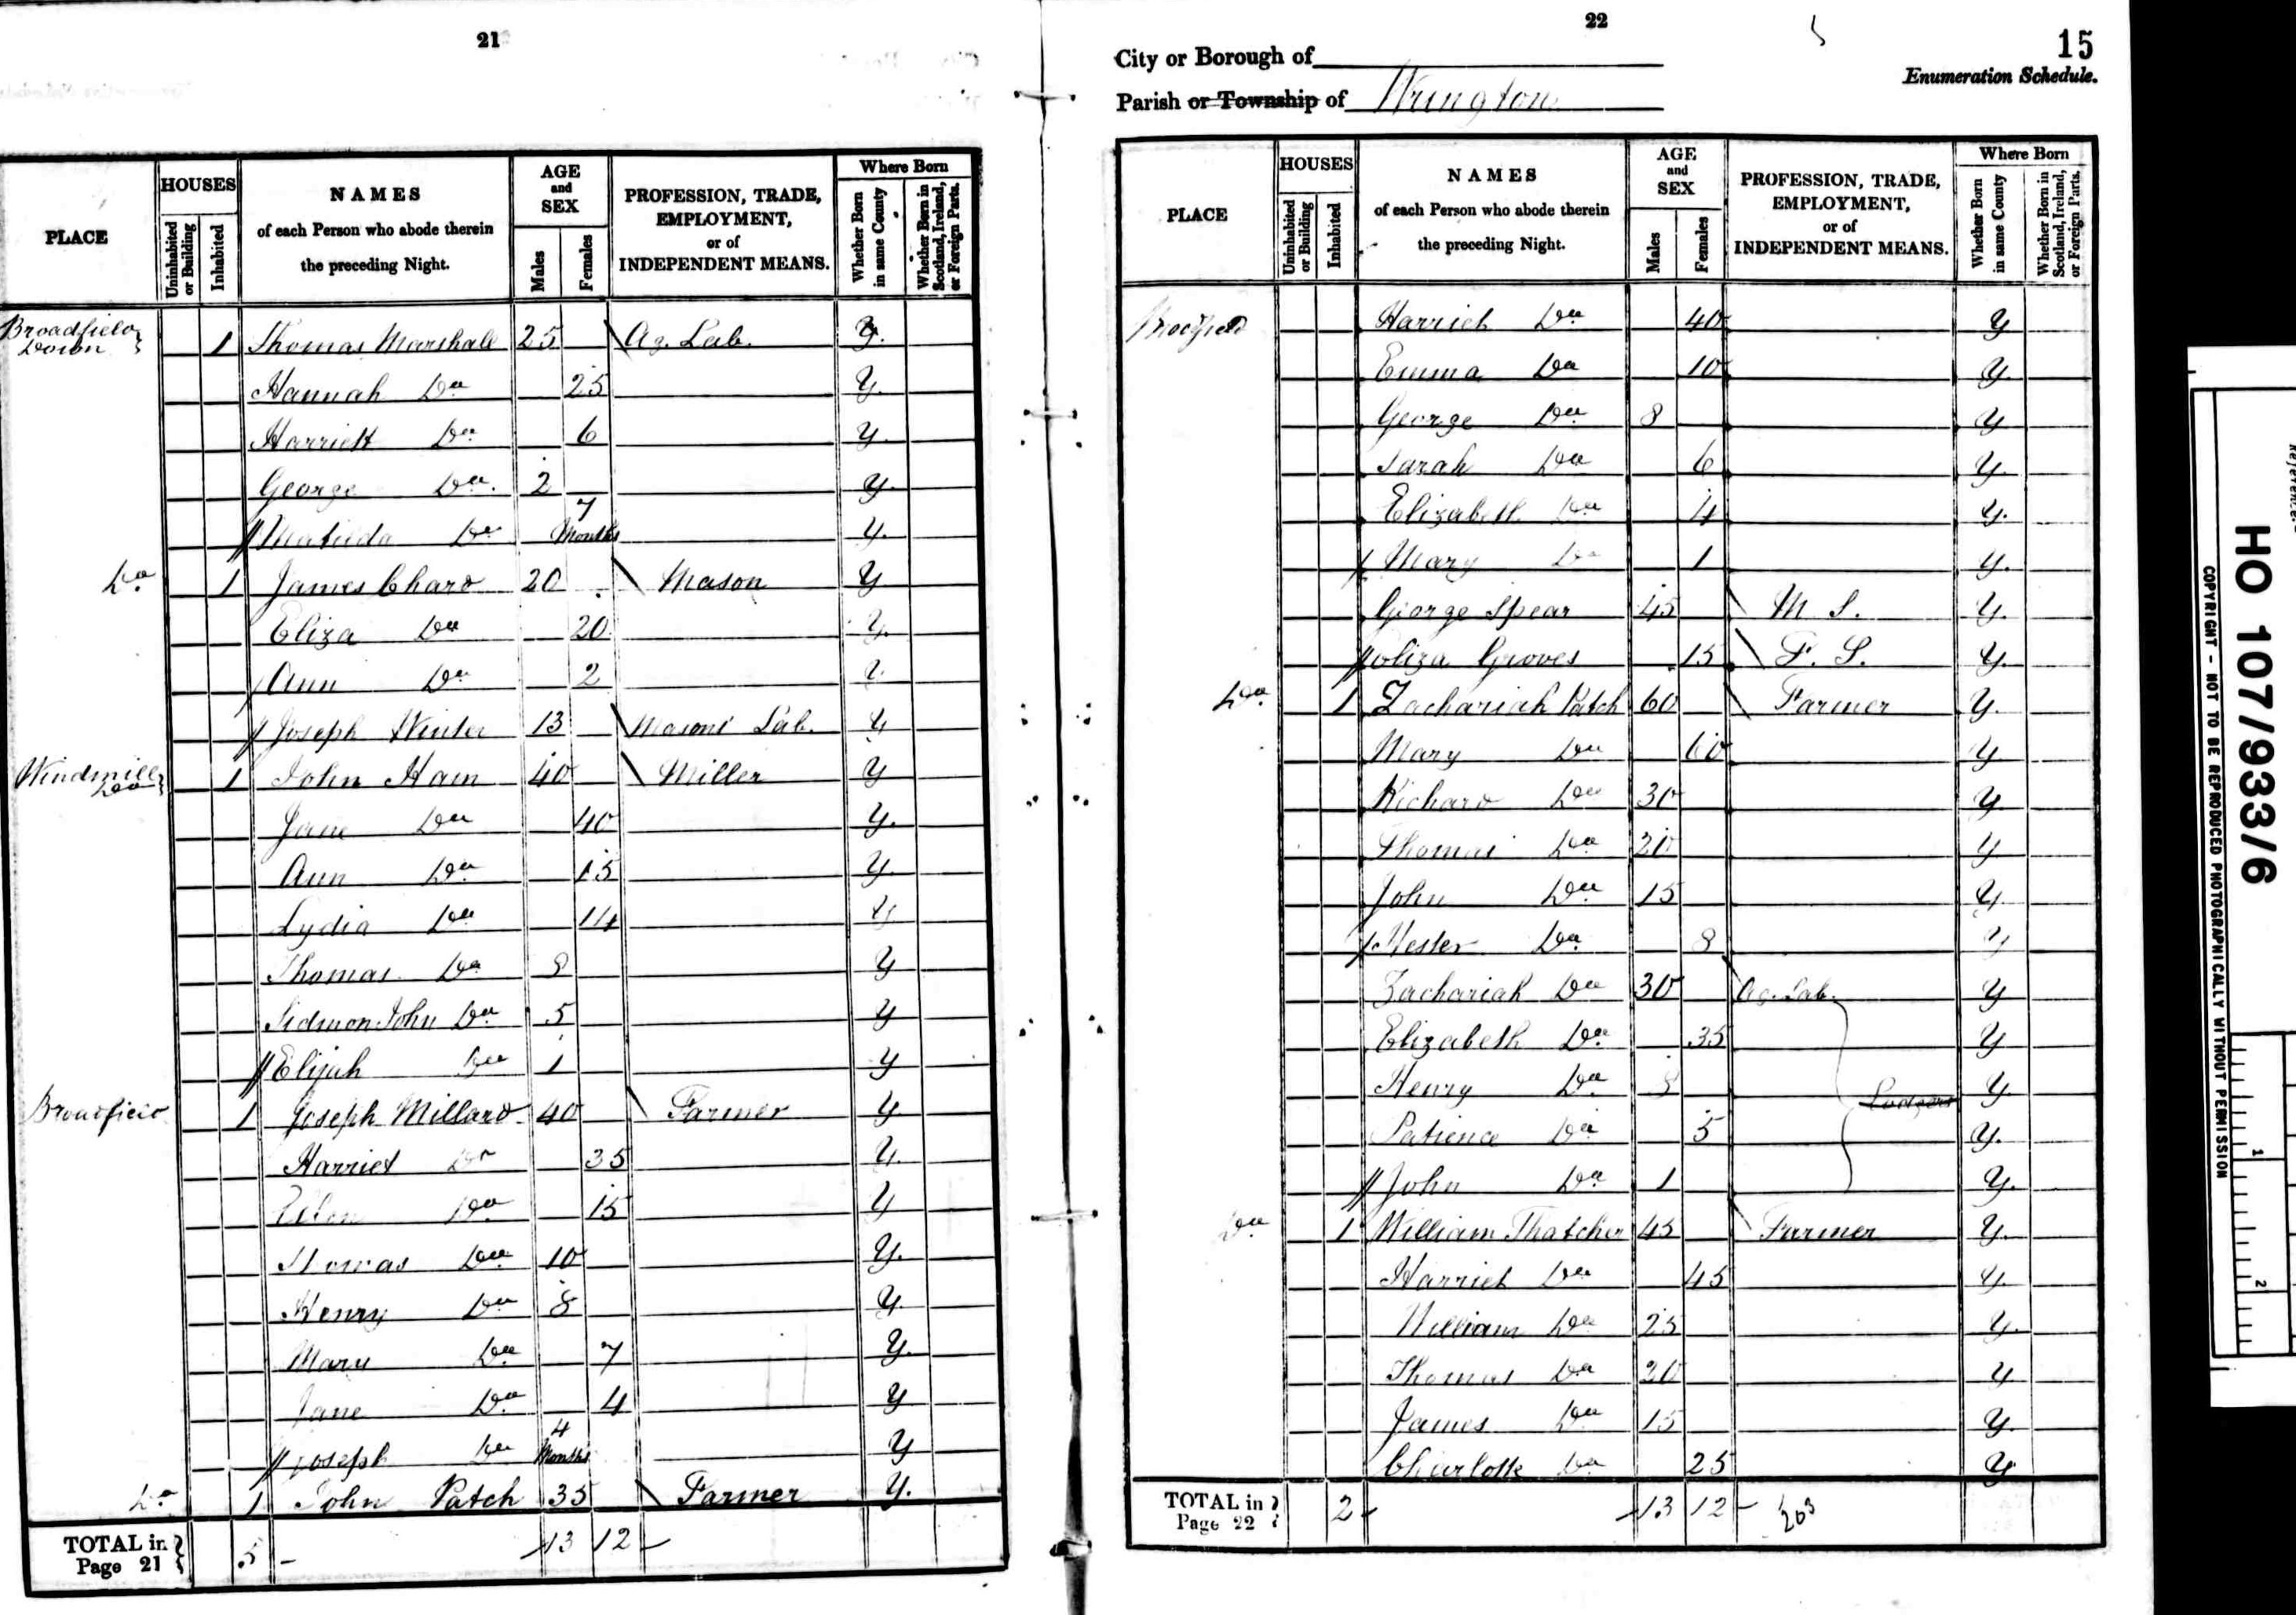 21
PLACE
HOUSES
Uninhabited or Building
Inhabited
NAMES
of each Person who abode therein
the preceding Night.
AGE
and
SEX
Males
Females
PROFESSION, TRADE,
EMPLOYMENT,
or of
INDEPENDENT MEANS.
Where Born
Whether Born in same County
Whether Born in Scotland, Ireland, or Foreign Parts.
Broadfield Down } 1 Thomas Marshall 25 Ag. Lab. Y.
Hannah Do 25 Y.
Harriett Do 6 Y.
George Do. 2 Y.
Matilda Do 7 Months Y.
Do 1 James Chard 20 Mason Y
Eliza Do 20 Y.
Ann Do 2 Y
Joseph Winter 13 Masons Lab. Y
Windmill Do } 1 John Ham 40 Miller Y
Jane Do 40 Y.
Ann Do 15 Y.
Lydia Do 14 Y
Thomas Do 8 Y
John Do 5 Y
Elijah Do 1 Y
Broadfield 1 Joseph Millard 40 Farmer Y.
Harriet Do 35 Y.
Do 15 Y
Thomas Do 10 Y.
Henry Do 8 Y.
Mary Do 7 Y.
Jane Do 4 Y
Joseph Do 4 Months Y
Do 1 John Patch 35 Farmer Y.
TOTAL in Page 21 } 5 13 12
22
15
City or Borough of
Enumeration Schedule.
Parish or Township of Wrington
PLACE
HOUSES
Uninhabited or Building
Inhabited
NAMES
of each Person who abode therein
the preceding Night.
AGE
and
SEX
Males
Females
PROFESSION, TRADE,
EMPLOYMENT,
or of
INDEPENDENT MEANS.
Where Born
Whether Born in same County
Whether Born in Scotland, Ireland, or Foreign Parts.
Harriet Do 40 Y
Emma Do 10 Y.
George Do 8 Y
Sarah Do 6 Y.
Elizabeth Do 4 Y.
Mary Do 1 Y.
George Spear 45 M S. Y.
Eliza Groves 15 F. S. Y.
Do. 1 Zachariah Patch 60 Farmer Y.
Mary Do 60 Y
Richard Do 30 Y.
Thomas Do 20 Y
John Do 15 Y.
Hester Do 8 Y
Zachariah Do 30 Ag. Lab. Y
Elizabeth Do 35 Y
Henry Do 8 Lodgers Y.
Patience Do 5 Y.
John Do 1 Y.
Do 1 William Thatcher 45 Farmer Y.
Harriet Do 45 Y.
William Do 25 Y.
Thomas Do 20 Y
James Do 15 Y.
Charlotte Do 25 Y
TOTAL in Page 22 } 2 13 12 203
HO 107/933/6
COPYRIGHT - NOT TO BE REPRODUCED PHOTOGRAPHICALLY WITHOUT PERMISSION
Reference:-
1
2